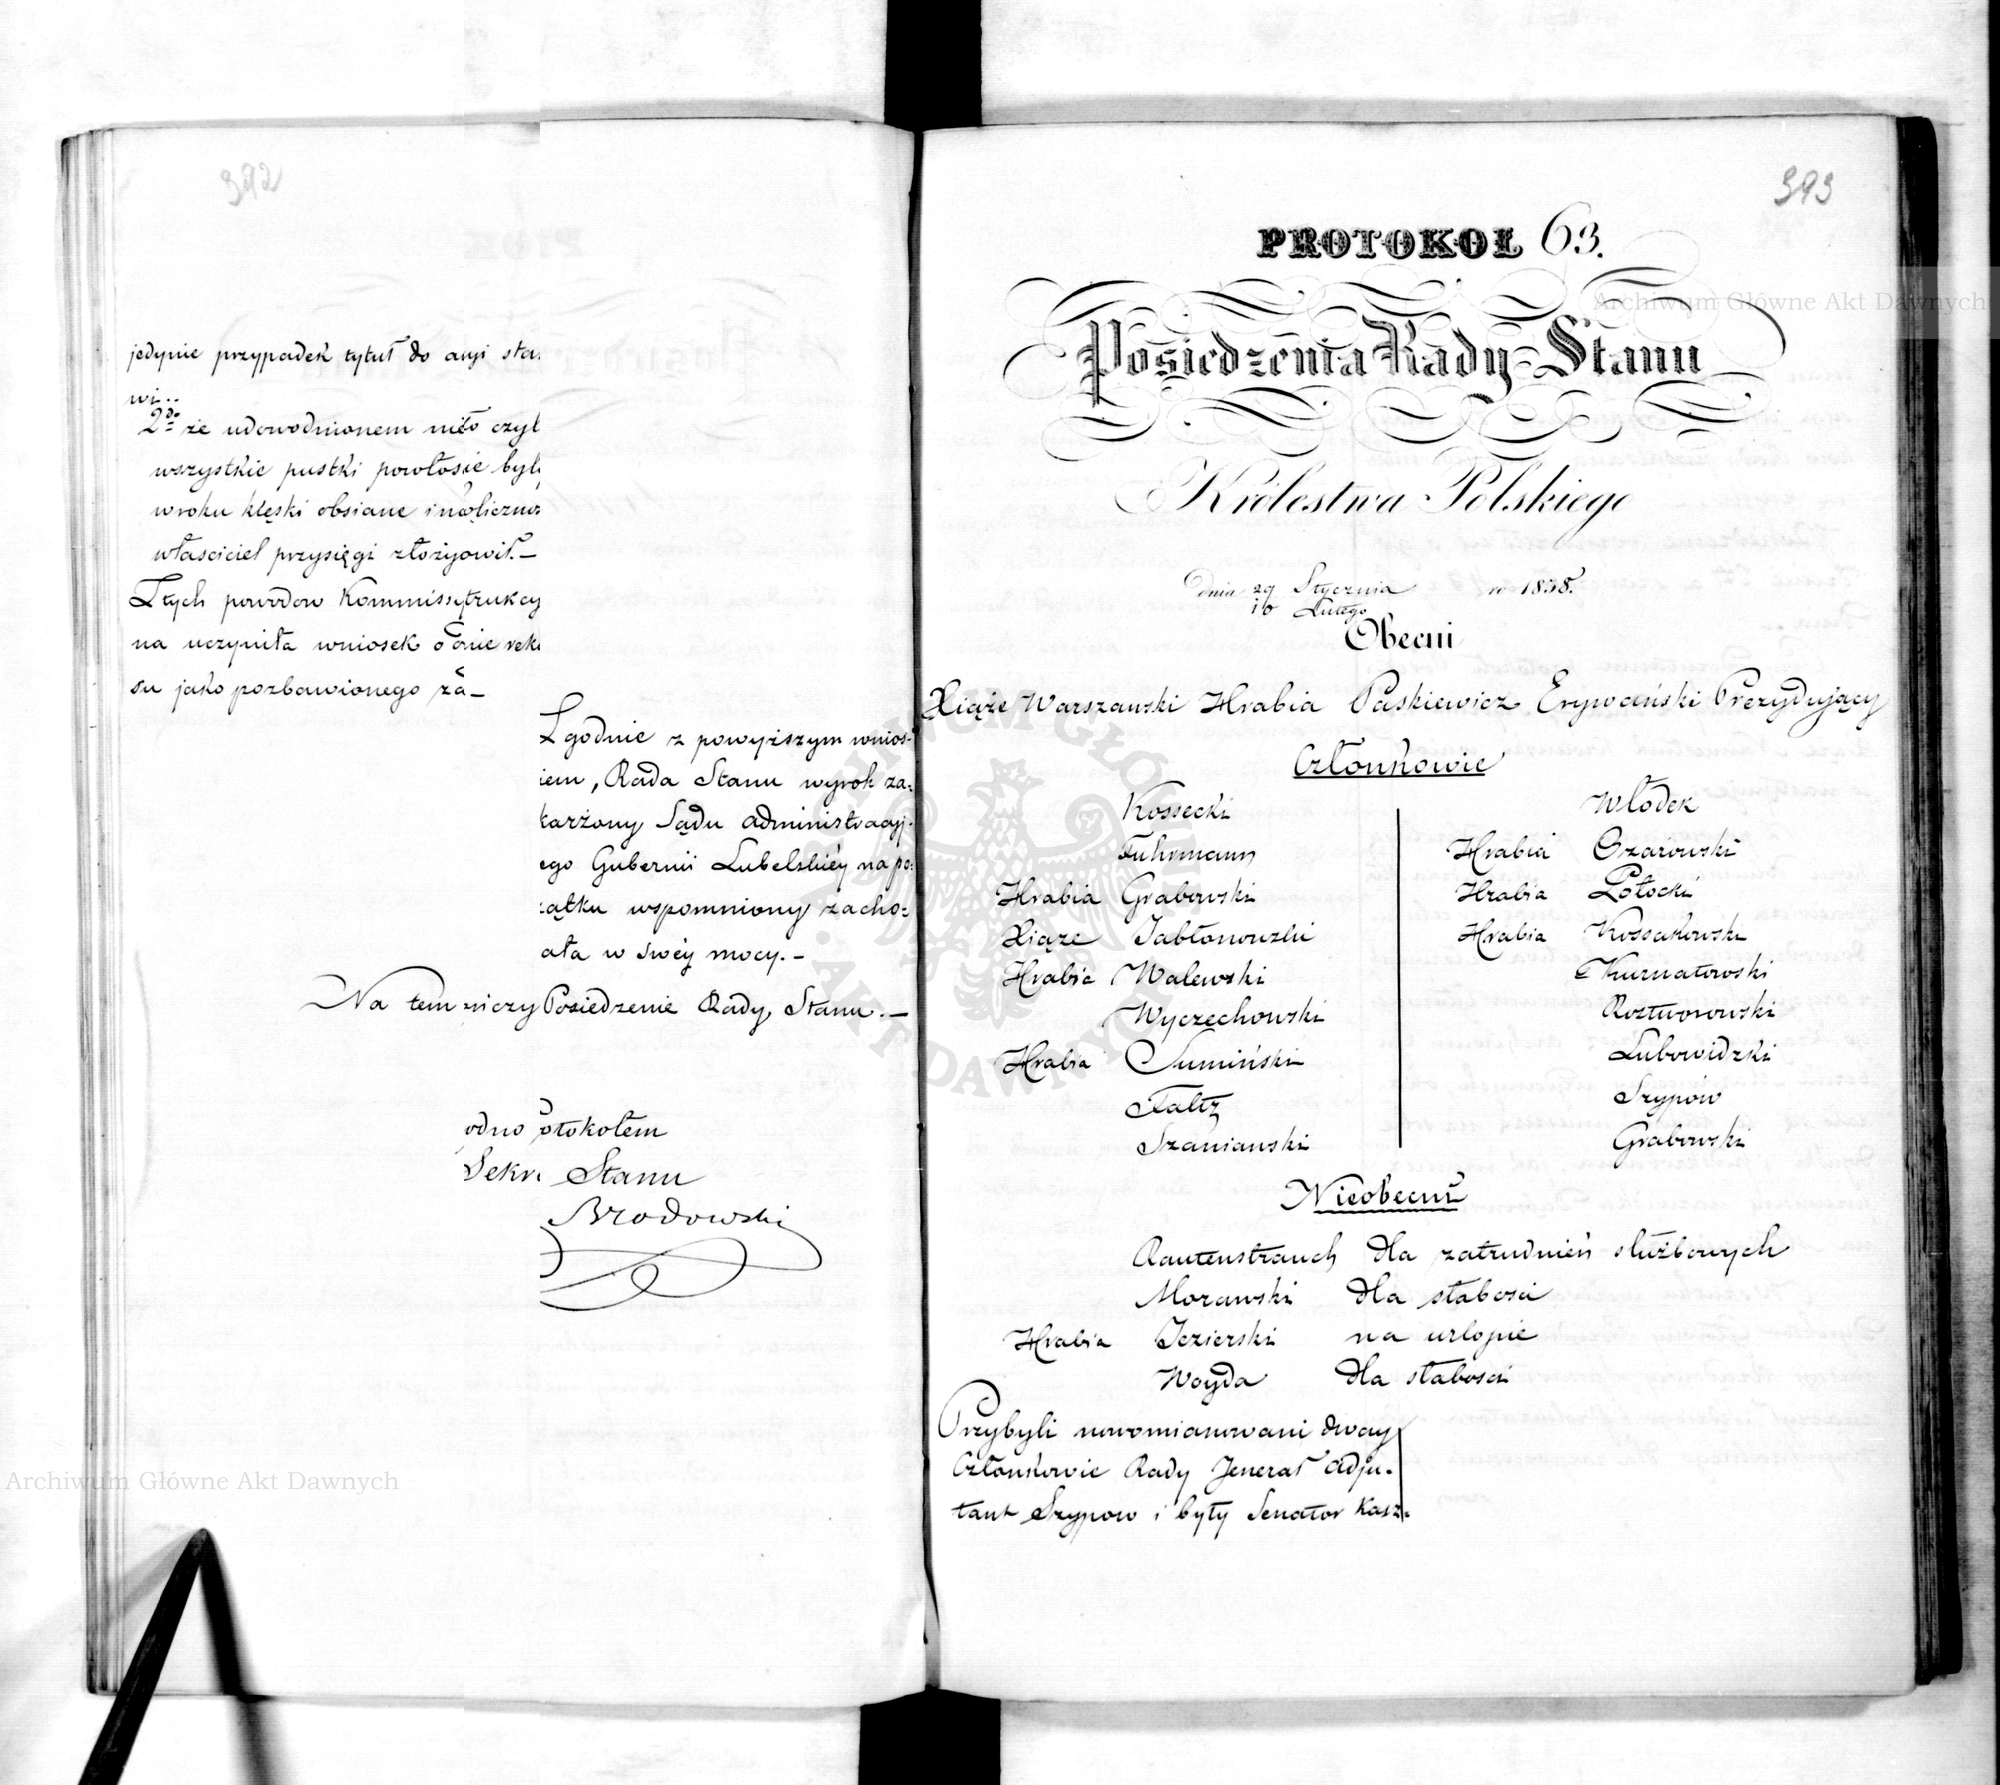 392
jedynie przypadek tytuł do ulgi sta
wi..
2do że udowodnionem czyl
wszystkie pustki powłosie był
w roku klęski obsiane i
właściciel przysięgi złożył
Z tych powodów Kommissya
na uczyniła wniosek o
su jako pozbawionego za
Zgodnie z powyższym wnios-
iem, Rada Stanu wyrok za-
karżony Sądu administracyj-
ego Gubernii Lubelskiéy na po-
zątku wspomniony zacho-
ała w swéy mocy.-
Na tem Posiedzenie Rady Stanu.-
odno otokołem
Sekr. Stanu
Brodowski
393
PROTOKOŁ 63.
Posiedzenia Rady Stanu
Królestwa Polskiego
Dnia 29 Stycznia
10 Lutego r. 1838.
Obecni
Xiąże Warszawski Hrabia Paskiewicz Erywański Prezydujący
Członkowie
Kossecki
Fuhrmann
Hrabia Grabowski
Xiąże Jabłonowski
Hrabia Walewski
Wyczechowski
Hrabia Sumiński
Faltz
Szaniawski
Włodek
Hrabia Ożarowski
Hrabia Potocki
Hrabia Kossakowski
Kurnatowski
Roztworowski
Lubowidzki
Szypow
Grabowski
Nieobecni
Rautenstrauch dla zatrudnień służbowych
Morawski dla słabości
Hrabia Jezierski na urlopie
Woyda dla słabości
Przybyli nowomianowani dway
Członkowie Rady Jenerał Adju-
tant Szypow i były Senator Kasz-
Archiwum Główne Akt Dawnych
Archiwum Główne Akt Dawnych
ARCHIWUM GŁÓWNE AKT DAWNYCH